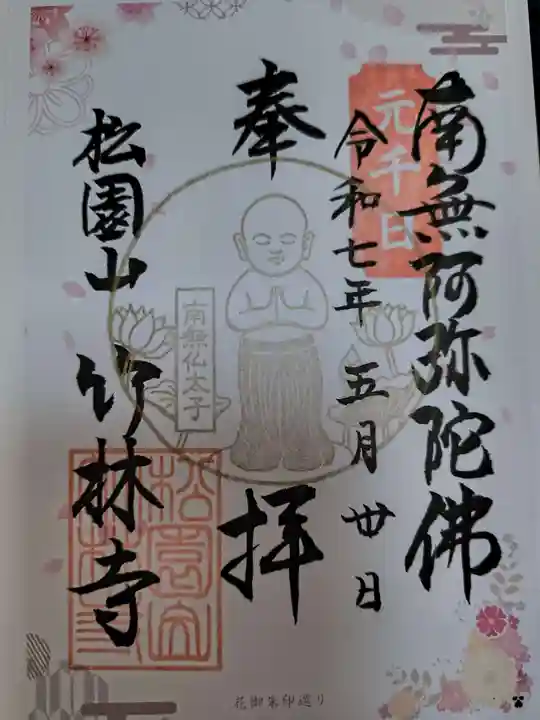 南無阿弥陀佛
元千日
令和七年 五月 廿日
奉拝
南無仏太子
松園山 竹林寺
花御朱印巡り